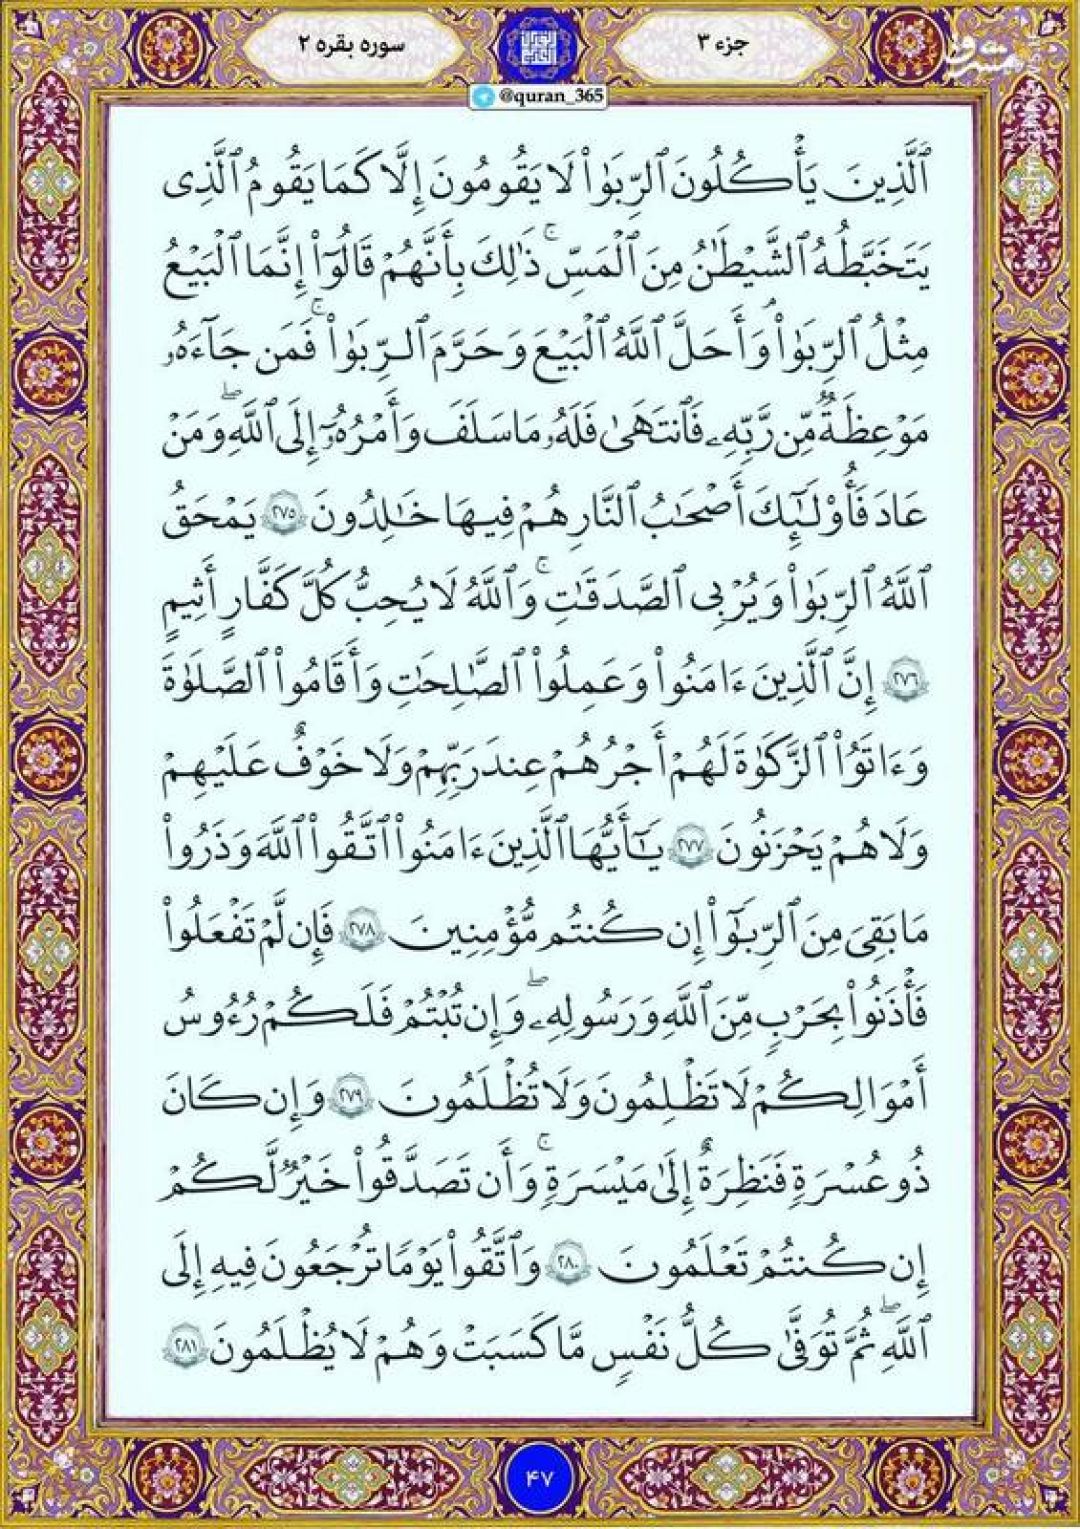 جزء ۳
سوره بقره ۲
@quran_365
ٱلَّذِينَ يَأْكُلُونَ ٱلرِّبَوٰا۟ لَا يَقُومُونَ إِلَّا كَمَا يَقُومُ ٱلَّذِى
يَتَخَبَّطُهُ ٱلشَّيْطَٰنُ مِنَ ٱلْمَسِّ ۚ ذَٰلِكَ بِأَنَّهُمْ قَالُوٓا۟ إِنَّمَا ٱلْبَيْعُ
مِثْلُ ٱلرِّبَوٰا۟ ۗ وَأَحَلَّ ٱللَّهُ ٱلْبَيْعَ وَحَرَّمَ ٱلرِّبَوٰا۟ ۚ فَمَن جَآءَهُۥ
مَوْعِظَةٌ مِّن رَّبِّهِۦ فَٱنتَهَىٰ فَلَهُۥ مَا سَلَفَ وَأَمْرُهُۥٓ إِلَى ٱللَّهِ ۖ وَمَنْ
عَادَ فَأُو۟لَٰٓئِكَ أَصْحَٰبُ ٱلنَّارِ هُمْ فِيهَا خَٰلِدُونَ ۲۷۵ يَمْحَقُ
ٱللَّهُ ٱلرِّبَوٰا۟ وَيُرْبِى ٱلصَّدَقَٰتِ ۚ وَٱللَّهُ لَا يُحِبُّ كُلَّ كَفَّارٍ أَثِيمٍ
۲۷۶ إِنَّ ٱلَّذِينَ ءَامَنُوا۟ وَعَمِلُوا۟ ٱلصَّٰلِحَٰتِ وَأَقَامُوا۟ ٱلصَّلَوٰةَ
وَءَاتَوُا۟ ٱلزَّكَوٰةَ لَهُمْ أَجْرُهُمْ عِندَ رَبِّهِمْ وَلَا خَوْفٌ عَلَيْهِمْ
وَلَا هُمْ يَحْزَنُونَ ۲۷۷ يَٰٓأَيُّهَا ٱلَّذِينَ ءَامَنُوا۟ ٱتَّقُوا۟ ٱللَّهَ وَذَرُوا۟
مَا بَقِىَ مِنَ ٱلرِّبَوٰٓا۟ إِن كُنتُم مُّؤْمِنِينَ ۲۷۸ فَإِن لَّمْ تَفْعَلُوا۟
فَأْذَنُوا۟ بِحَرْبٍ مِّنَ ٱللَّهِ وَرَسُولِهِۦ ۖ وَإِن تُبْتُمْ فَلَكُمْ رُءُوسُ
أَمْوَٰلِكُمْ لَا تَظْلِمُونَ وَلَا تُظْلَمُونَ ۲۷۹ وَإِن كَانَ
ذُو عُسْرَةٍ فَنَظِرَةٌ إِلَىٰ مَيْسَرَةٍ ۚ وَأَن تَصَدَّقُوا۟ خَيْرٌ لَّكُمْ
إِن كُنتُمْ تَعْلَمُونَ ۲۸۰ وَٱتَّقُوا۟ يَوْمًا تُرْجَعُونَ فِيهِ إِلَى
ٱللَّهِ ۖ ثُمَّ تُوَفَّىٰ كُلُّ نَفْسٍ مَّا كَسَبَتْ وَهُمْ لَا يُظْلَمُونَ ۲۸۱
۴۷